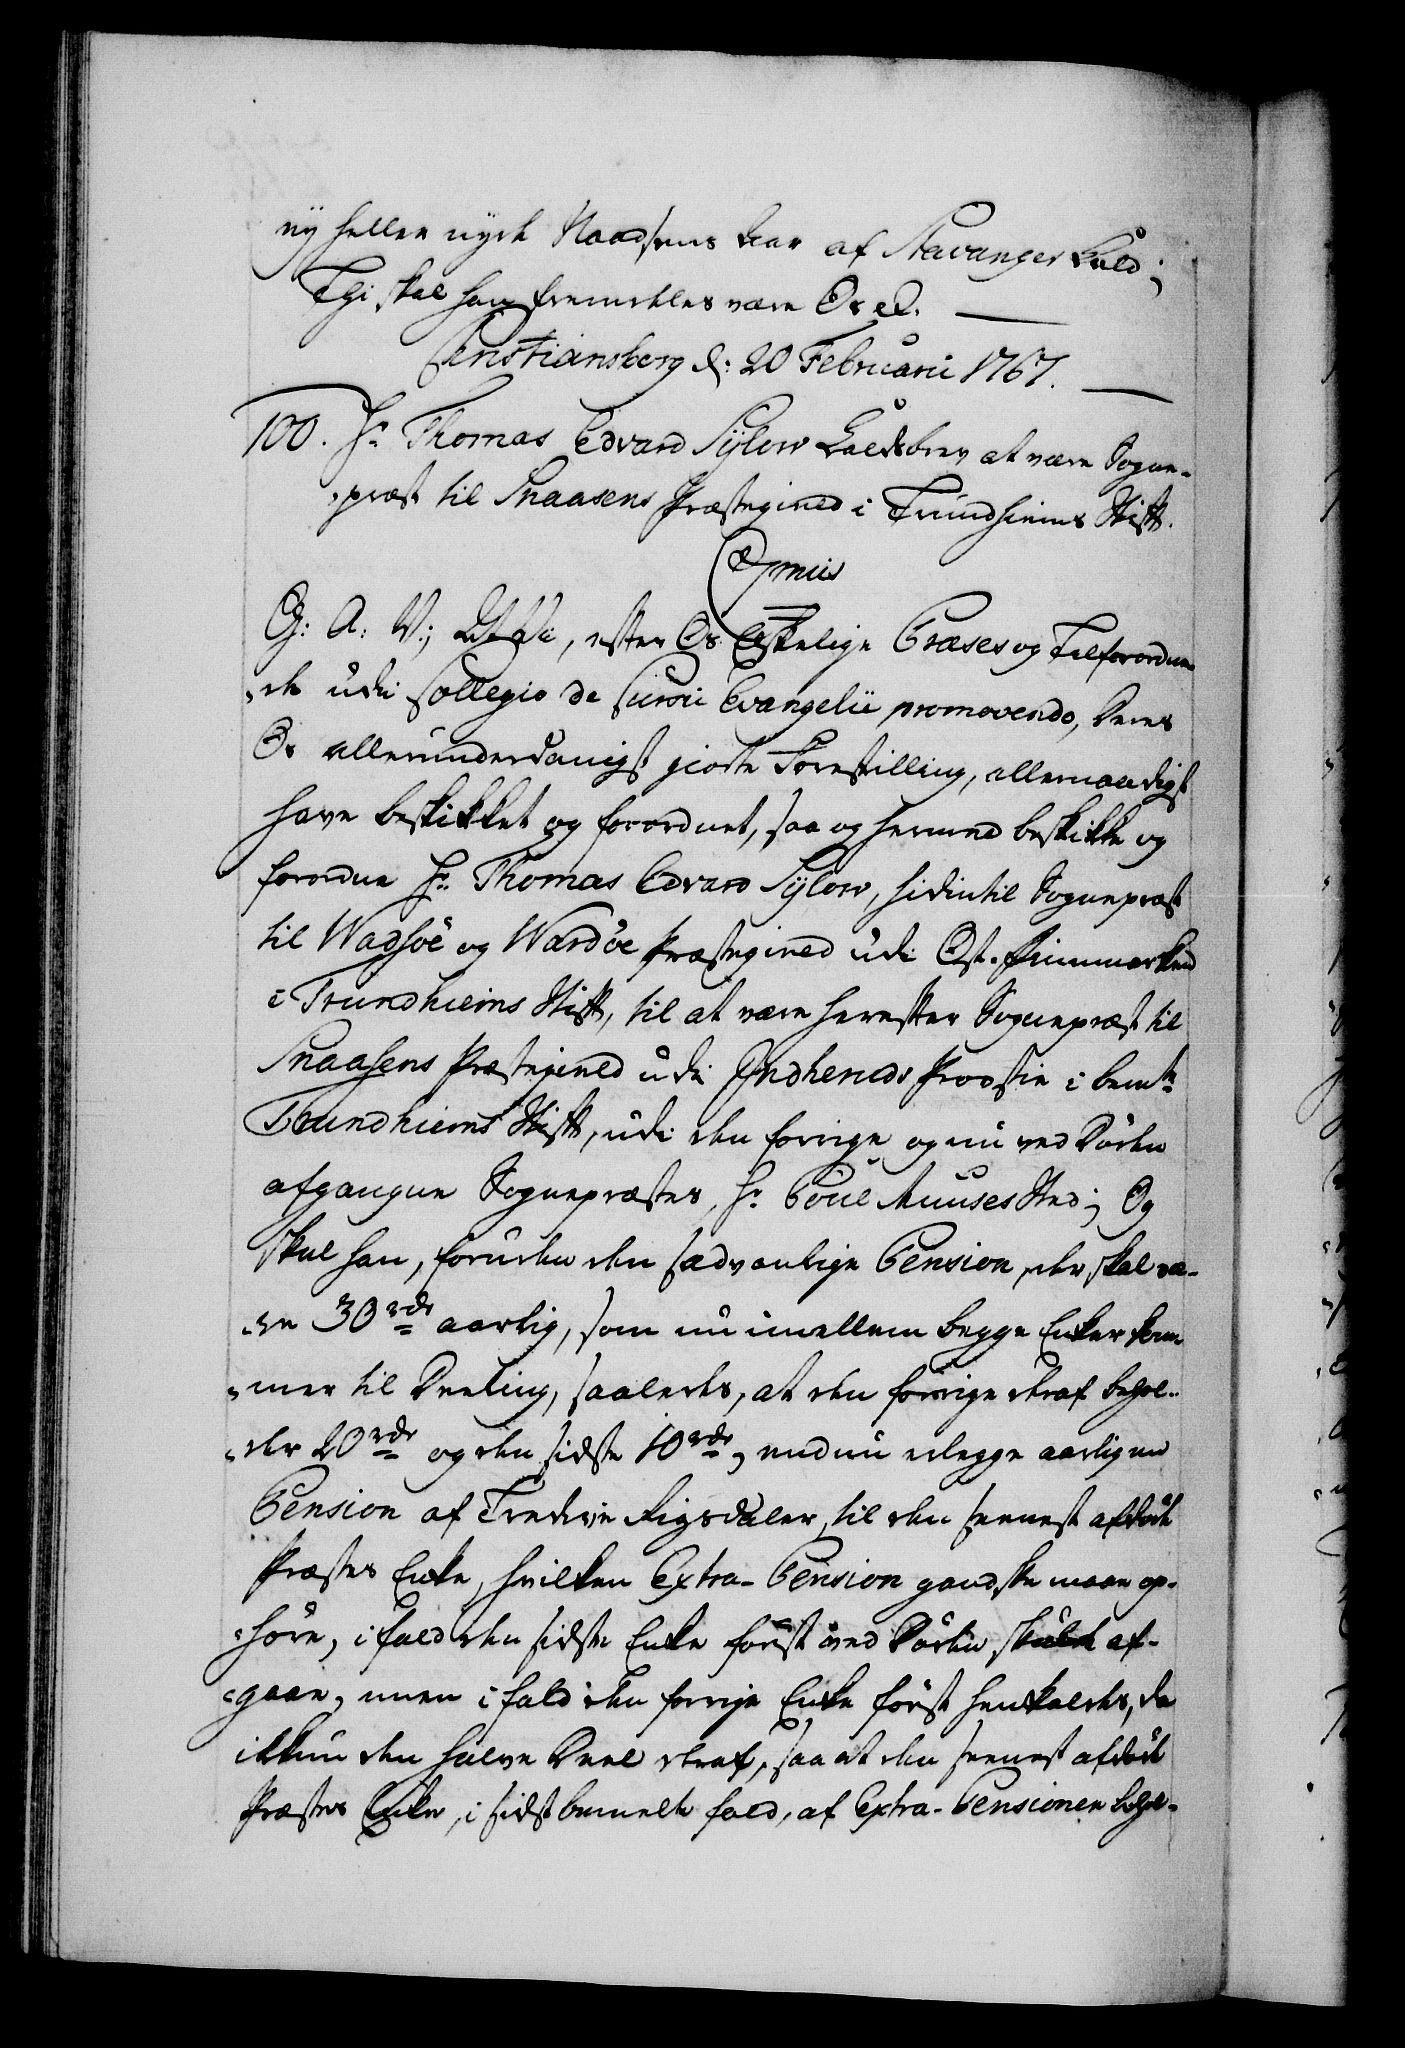 ey heller nyde Naadsens Aar af Stavanger Kald;
Thi skal han fremdeles være Os et.
Christiansborg d: 20 Februarii 1767.
100. Hr Thomas Edvard Sylow Kaldsbrev at være Sogne-
præst til Snaasens Præstegield i Trundhiems Stift.
Gratis
C. A. V., efter Os Elskelige Præses og Tilforordne-
de udi Collegio de Cursu Evangelii promovendo, deres
Os allerunderdanigst giorte Forestilling, allernaadigst
have beskikket og forordnet, saa og hermed beskikke og
forordne Hr. Thomas Edvard Sylow, hidintil Sognepræst
til Wadsöe og Wardöe Præstegield udi Ost-Finmarken
i Trundhiems Stift, til at være herefter Sognepræst til
Snaasens Præstegield udi Indherreds Provstie i bemte
Trundhiems Stift, udi den forrige og nu ved Döden
afgangne Sognepræstes, Hr Poul Muuses Sted; Og
skal han, foruden den sædvanlige Pension, der skal væ-
re 30 rdr aarlig, som nu imellem begge Enker kom-
mer til Deeling, saaledes, at den forrige deraf behol-
der 20 rdr og den sidste 10 rdr, endnu erlegge aarlig en
Pension af Tredive Rigsdaler, til den seenest afdöde
Præstes Enke, hvilken Extra-Pension gandske maae op-
höre, i fald den sidste Enke först ved Döden skulde af-
gaae, men i fald den forrige Enke först henkaldes, da
ikkun den halve Deel deraf, saa at den seenest afdöde
Præstes Enke, i sidstbemelte fald, af Extra-Pensionen behol-